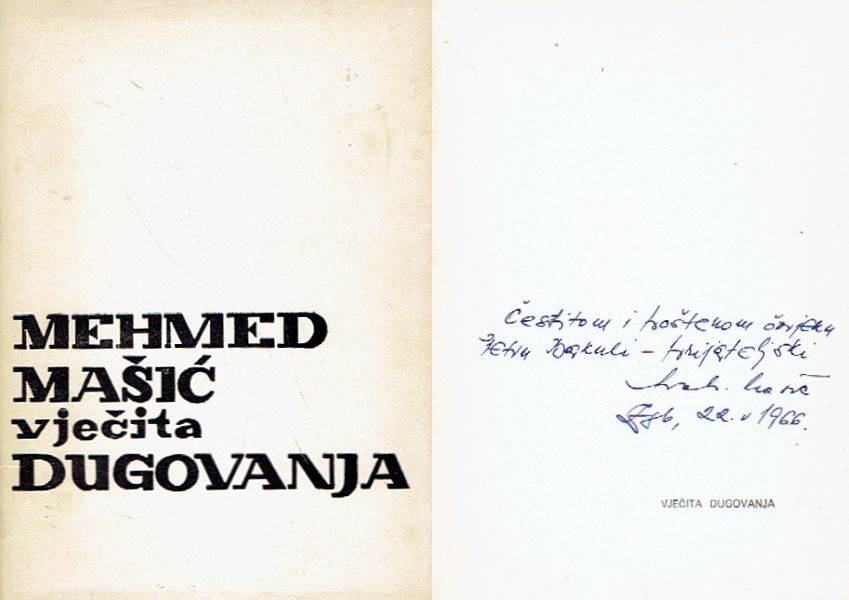 MEHMED
MAŠIĆ
vječita
DUGOVANJA
Čestitom i poštenom čovjeku
Petru Bakuli – prijateljski
Zgb, 22. V 1966.
VJEČITA DUGOVANJA